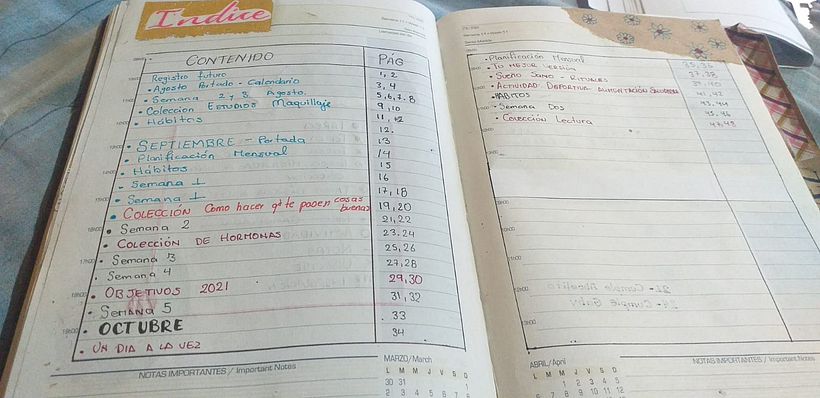 Indice
CONTENIDO PÁG
Registro futuro 1, 2
• Agosto Portado - Calendario 3, 4
• Semana 2 y 3 Agosto. 5,6,7,8
• Coleccion ESTUDIOS Maquillaje 9,10
• Hábitos 11, 12
12.
• SEPTIEMBRE - Portada 13
• Planificación Mensual 14
• Hábitos 15
- Semana 1 16
• Semana 1 17, 18
• COLECCIÓN Como hacer q' te pasen cosas buenas 19,20
• Semana 2 21,22
• COLECCIÓN DE HORMONAS 23.24
• Semana 3 25,26
• Semana 4 27,28
• OBJETIVOS 2021 29,30
• Semana 5 31,32
• OCTUBRE 33
• UN DIA A LA VEZ 34
NOTAS IMPORTANTES / Important Notes
MARZO / March
L M M J V S D
30 31 1
2 3 4 5 6 7 8
• Planificación Mensual
• TU MEJOR VERSIÓN 35,36
• SUEÑO SANO - RITUALES 37,38
• ACTIVIDAD DEPORTIVA ALIMENTACIÓN 39,40
•HÁBITOS 41,42
• Semana Dos 43,44
• Colección Lectura 45,46
47,48
ABRIL / April
L M M J V S D
1 2 3 4 5
6 7 8 9 10 11 12
NOTAS IMPORTANTES / Important Notes